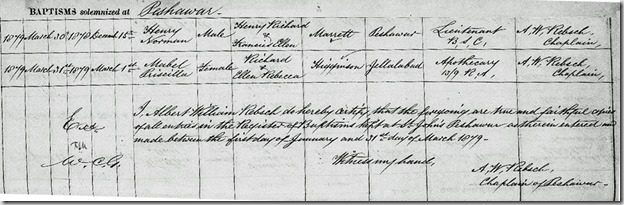 BAPTISMS solemnized at Peshawar.
1879 March 30th 1878 Decemb 15th Henry Norman Male Henry Richard & Francis Ellen Marrett Peshawar Lieutenant B.S.C. A.W. Rebsch, Chaplain,
1879 March 31st 1879 March 1st Mabel Priscilla Female Richard & Ellen Rebecca Higginson Jellalabad Apothecary 13/9 R.A. A.W. Rebsch, Chaplain,
I Albert William Rebsch do hereby certify that the foregoing are true and faithful copies
of all entries in the Register of Baptisms kept at St John's Peshawar as therein entered and
made between the first day of January and 31st day of March 1879.
Witness my hand,
A.W. Rebsch,
Chaplain of Peshawur.
Exd
W.C.G.